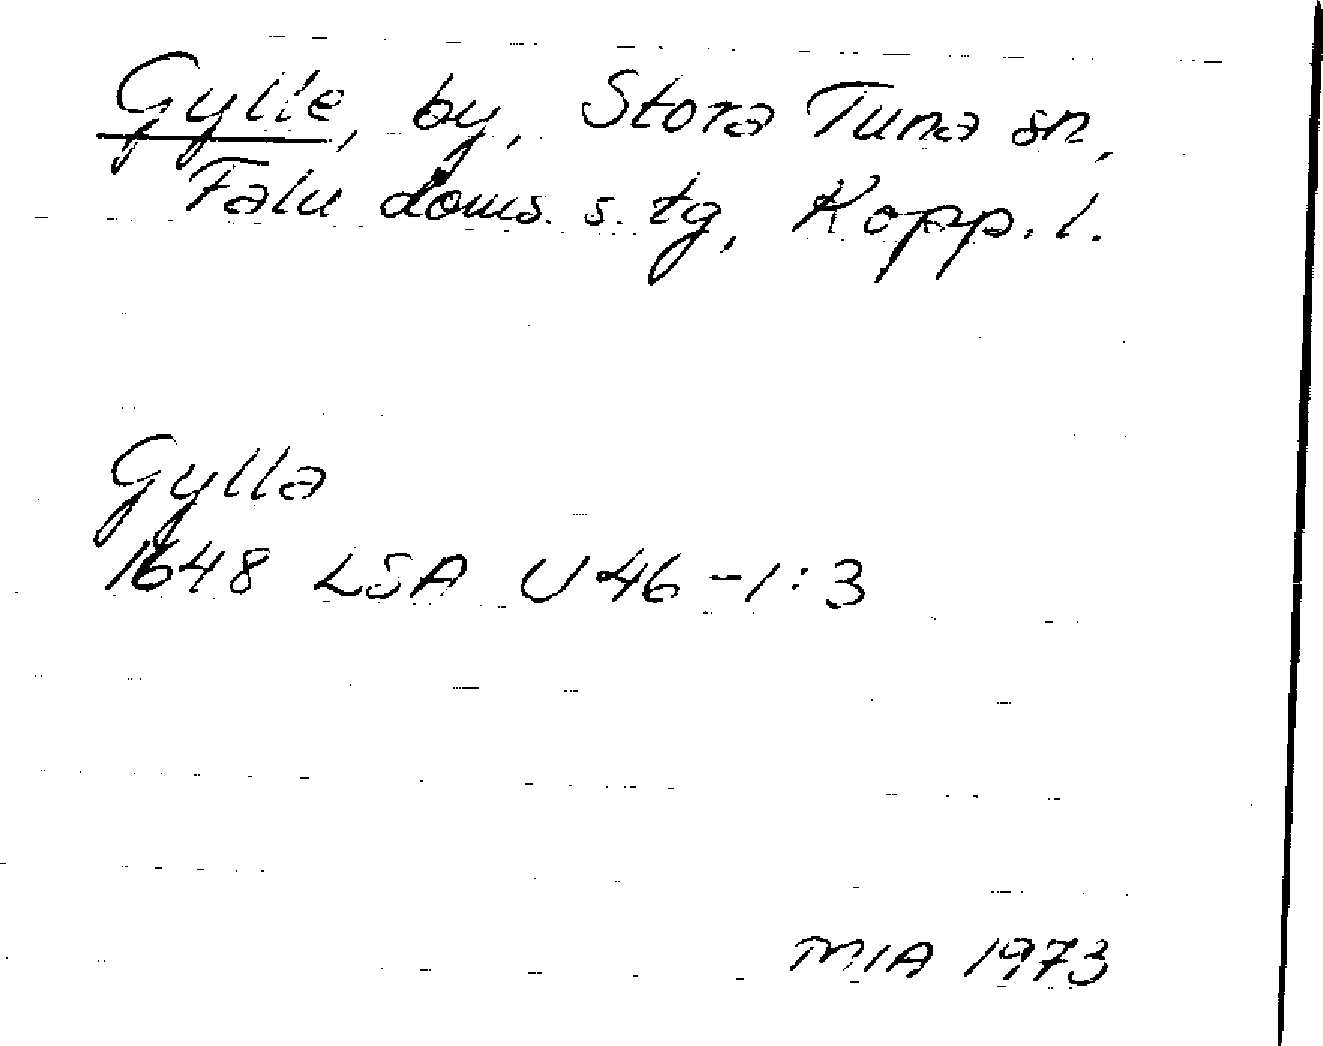 Gylle, by, Stora Tuna sn,
Falu doms. s. tg, Kopp. l.
Gylla
1648 LSA U 46-1:3
MIA 1973